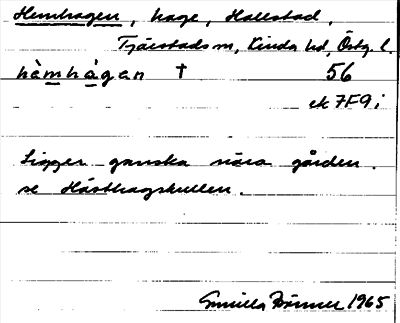 Hemhagen, hage, Hallstad,
Tjärstads sn, Kinda hd, Östg. l.
hæ̀mhàgan † 56
ek 7F9i
Ligger ganska nära gården.
se Hästhagskullen.
Gunilla 1965